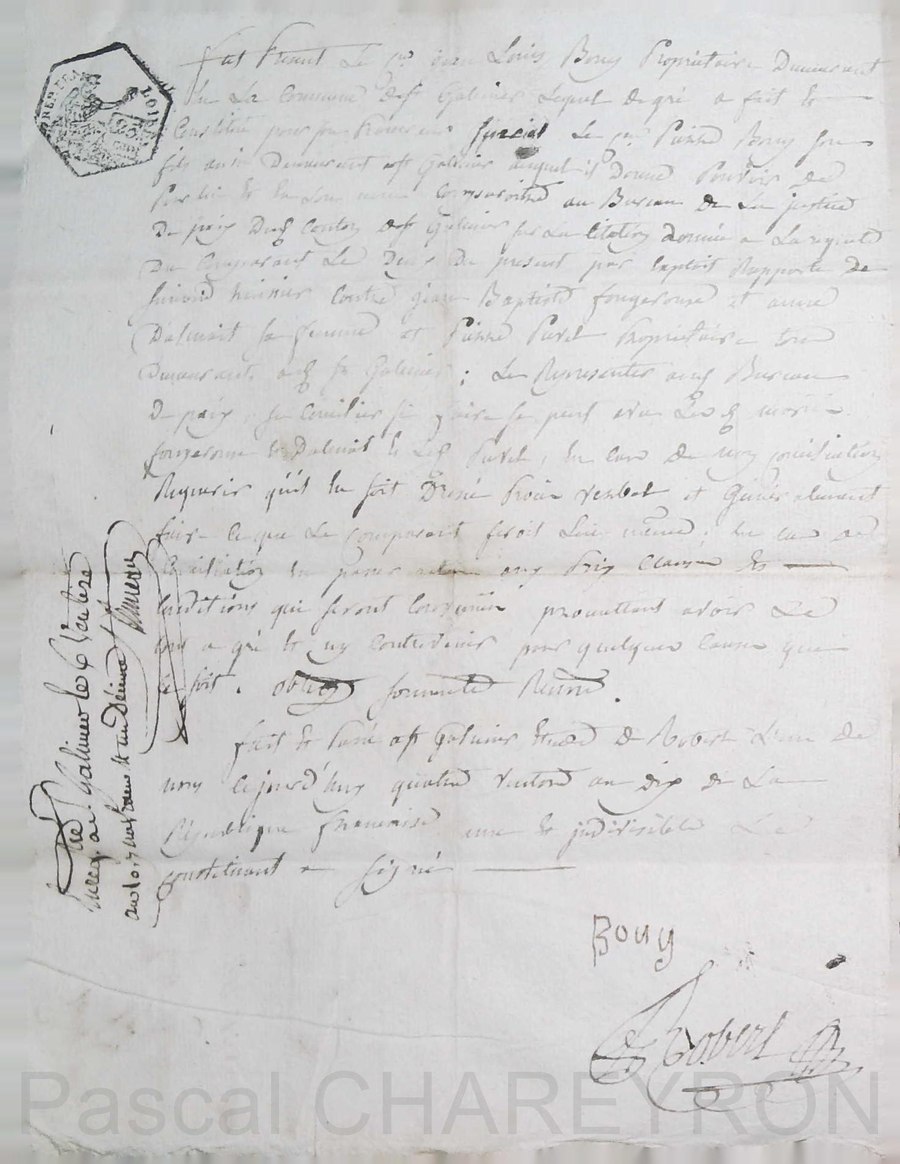 Fut Présent Le Cen jean Louis Bouy Propriétaire Demeurant
En La Commune de St Galmier Lequel de gré a fait &
Constitué pour son Procureur spécial Le Cen Pierre Bouy son
fils aussi Demeurant a St Galmier auquel il Donne Pouvoir de
Pour lui & En son nom Comparoitre au Bureau de La justice
De paix Dud Canton de St Galmier sur La Citation donnée a La requete
Du Comparant Le Deux Du présent par Exploit Rapporté De
huissier Contre jean Baptiste fougerouse et anne
Dalmait sa femme et Pierre Buret Propriétaire tous
Demeurants aud St Galmier ; Le Representer aud Bureau
De paix, se Concilier si faire se peut avec Lesd mariés
fougerouse & Dalmait & Led Buret, En Cas De non conciliation
Requerir qu'il En soit Dressé Procès verbal et Généralement
faire ce que Le comparant feroit Lui même ; En cas de
Conciliation En passer aux Prix Clauses &
Conditions qui seront Convenues promettant avoir Le
tout a gré & ny Contrevenir pour quelque Cause que
ce soit. obligé soumet
fait & Passé a St Galmier Etude De Robert L'un de
nous Cejourd'huy quatre Ventose an dix de La
République francaise une & indivisible Le
Constituant a signé
Bouy
Robert
a St Galmier le 6 Ventose
an 10
LOIRE
Pascal CHAREYRON